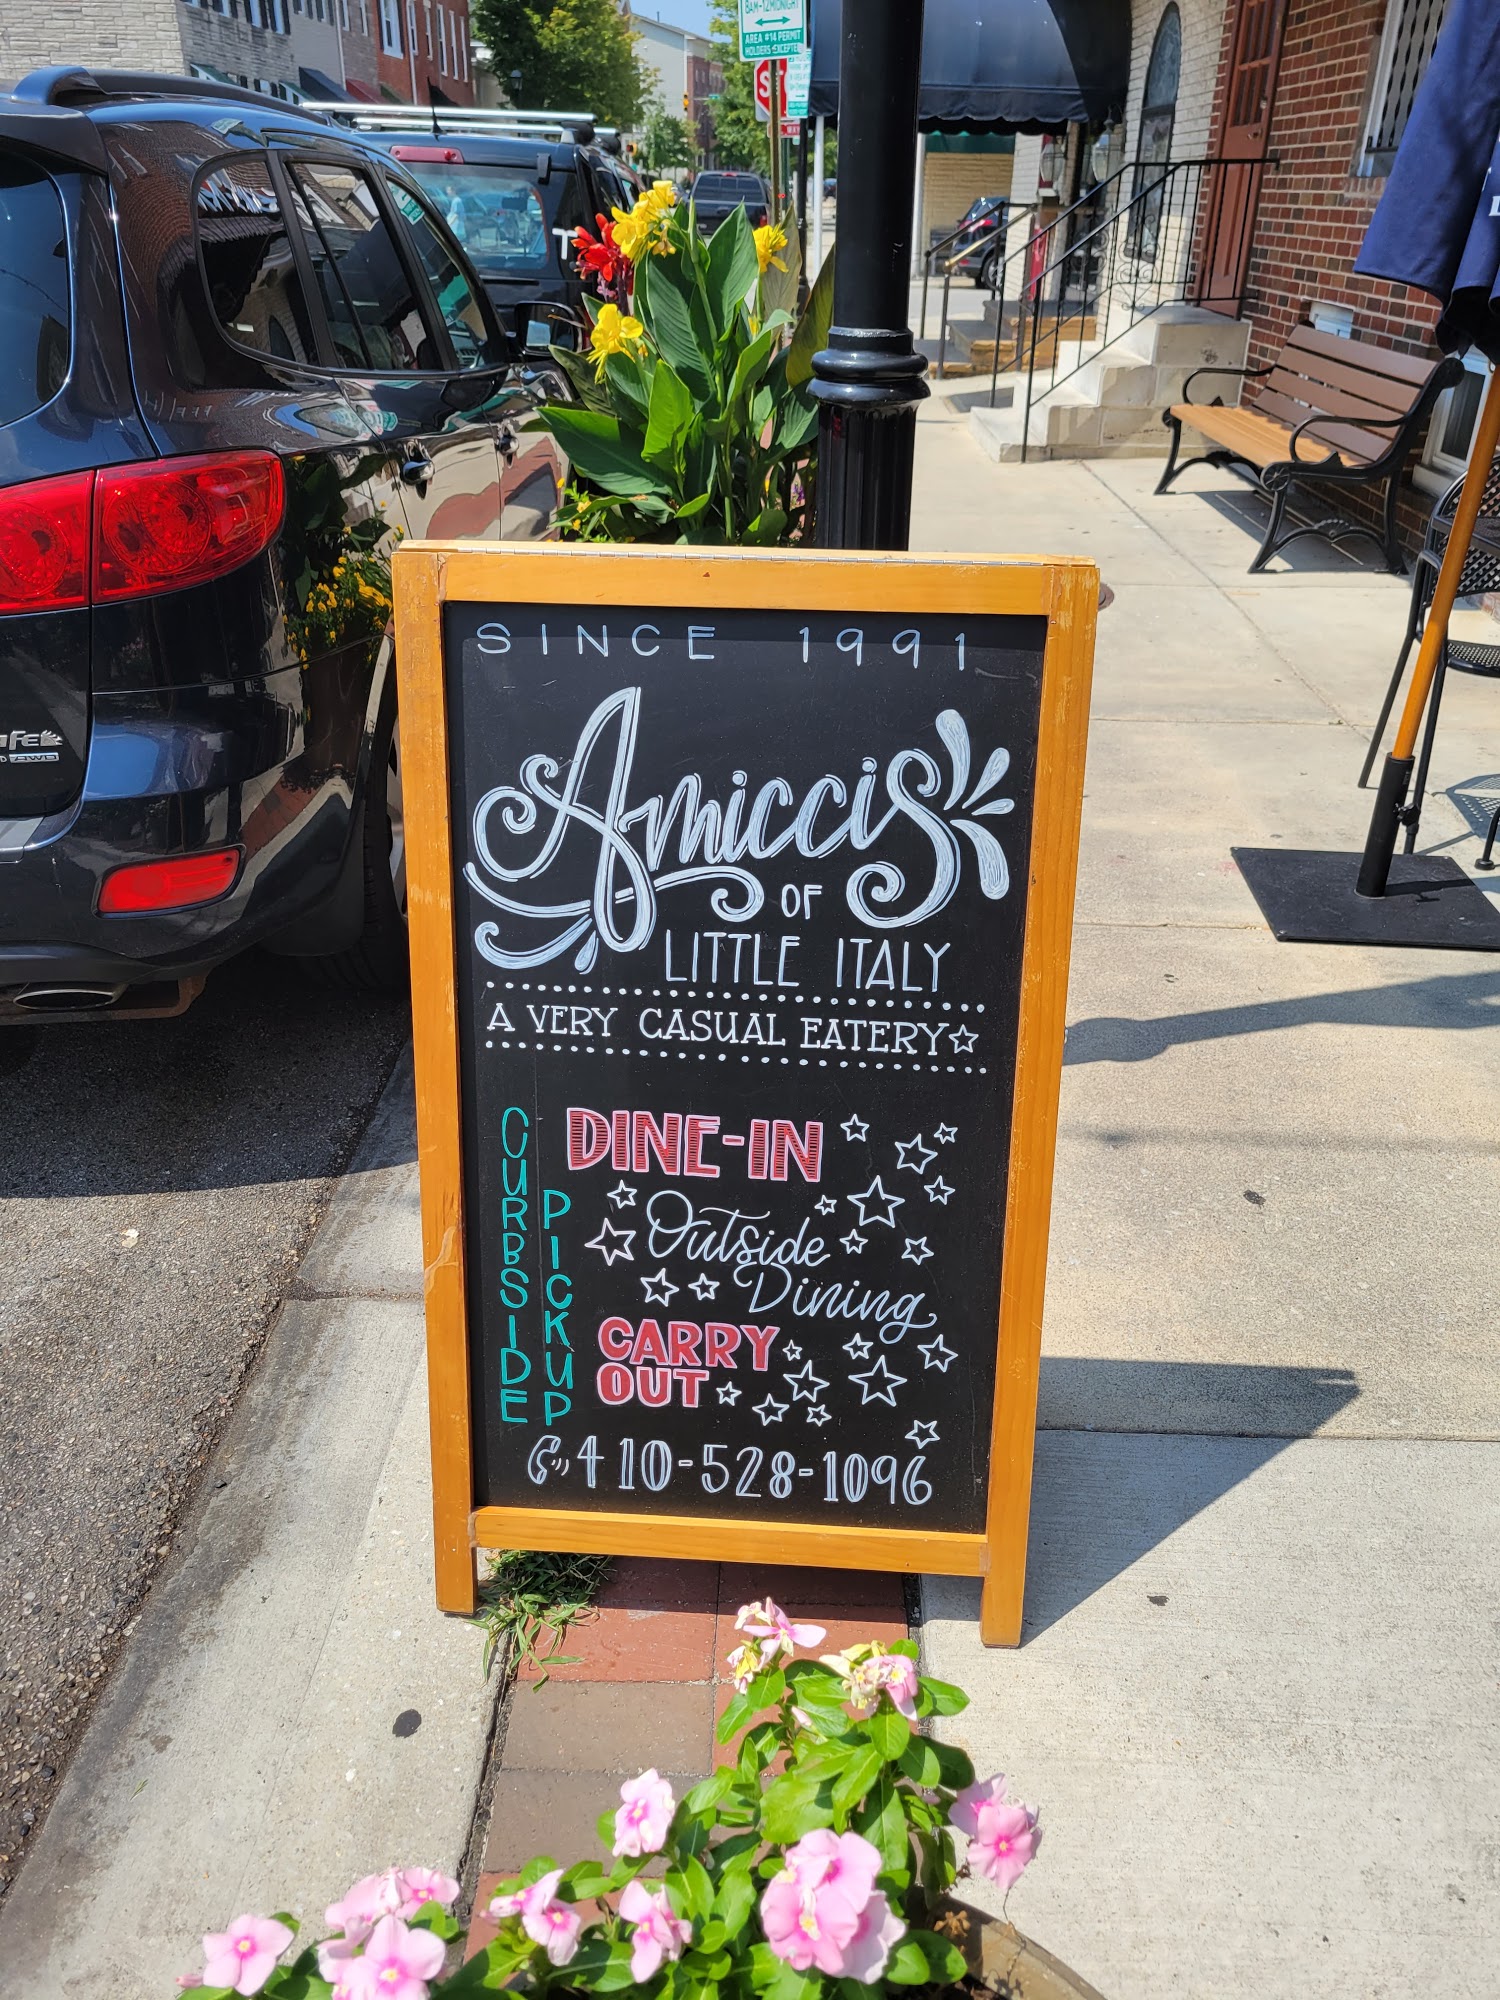 8AM-12MIDNIGHT
AREA #14 PERMIT
HOLDERS EXCEPTED
SINCE 1991
Amiccis
OF
LITTLE ITALY
A VERY CASUAL EATERY
CURBSIDE
PICKUP
DINE-IN
Outside
Dining
CARRY
OUT
410-528-1096
AWD